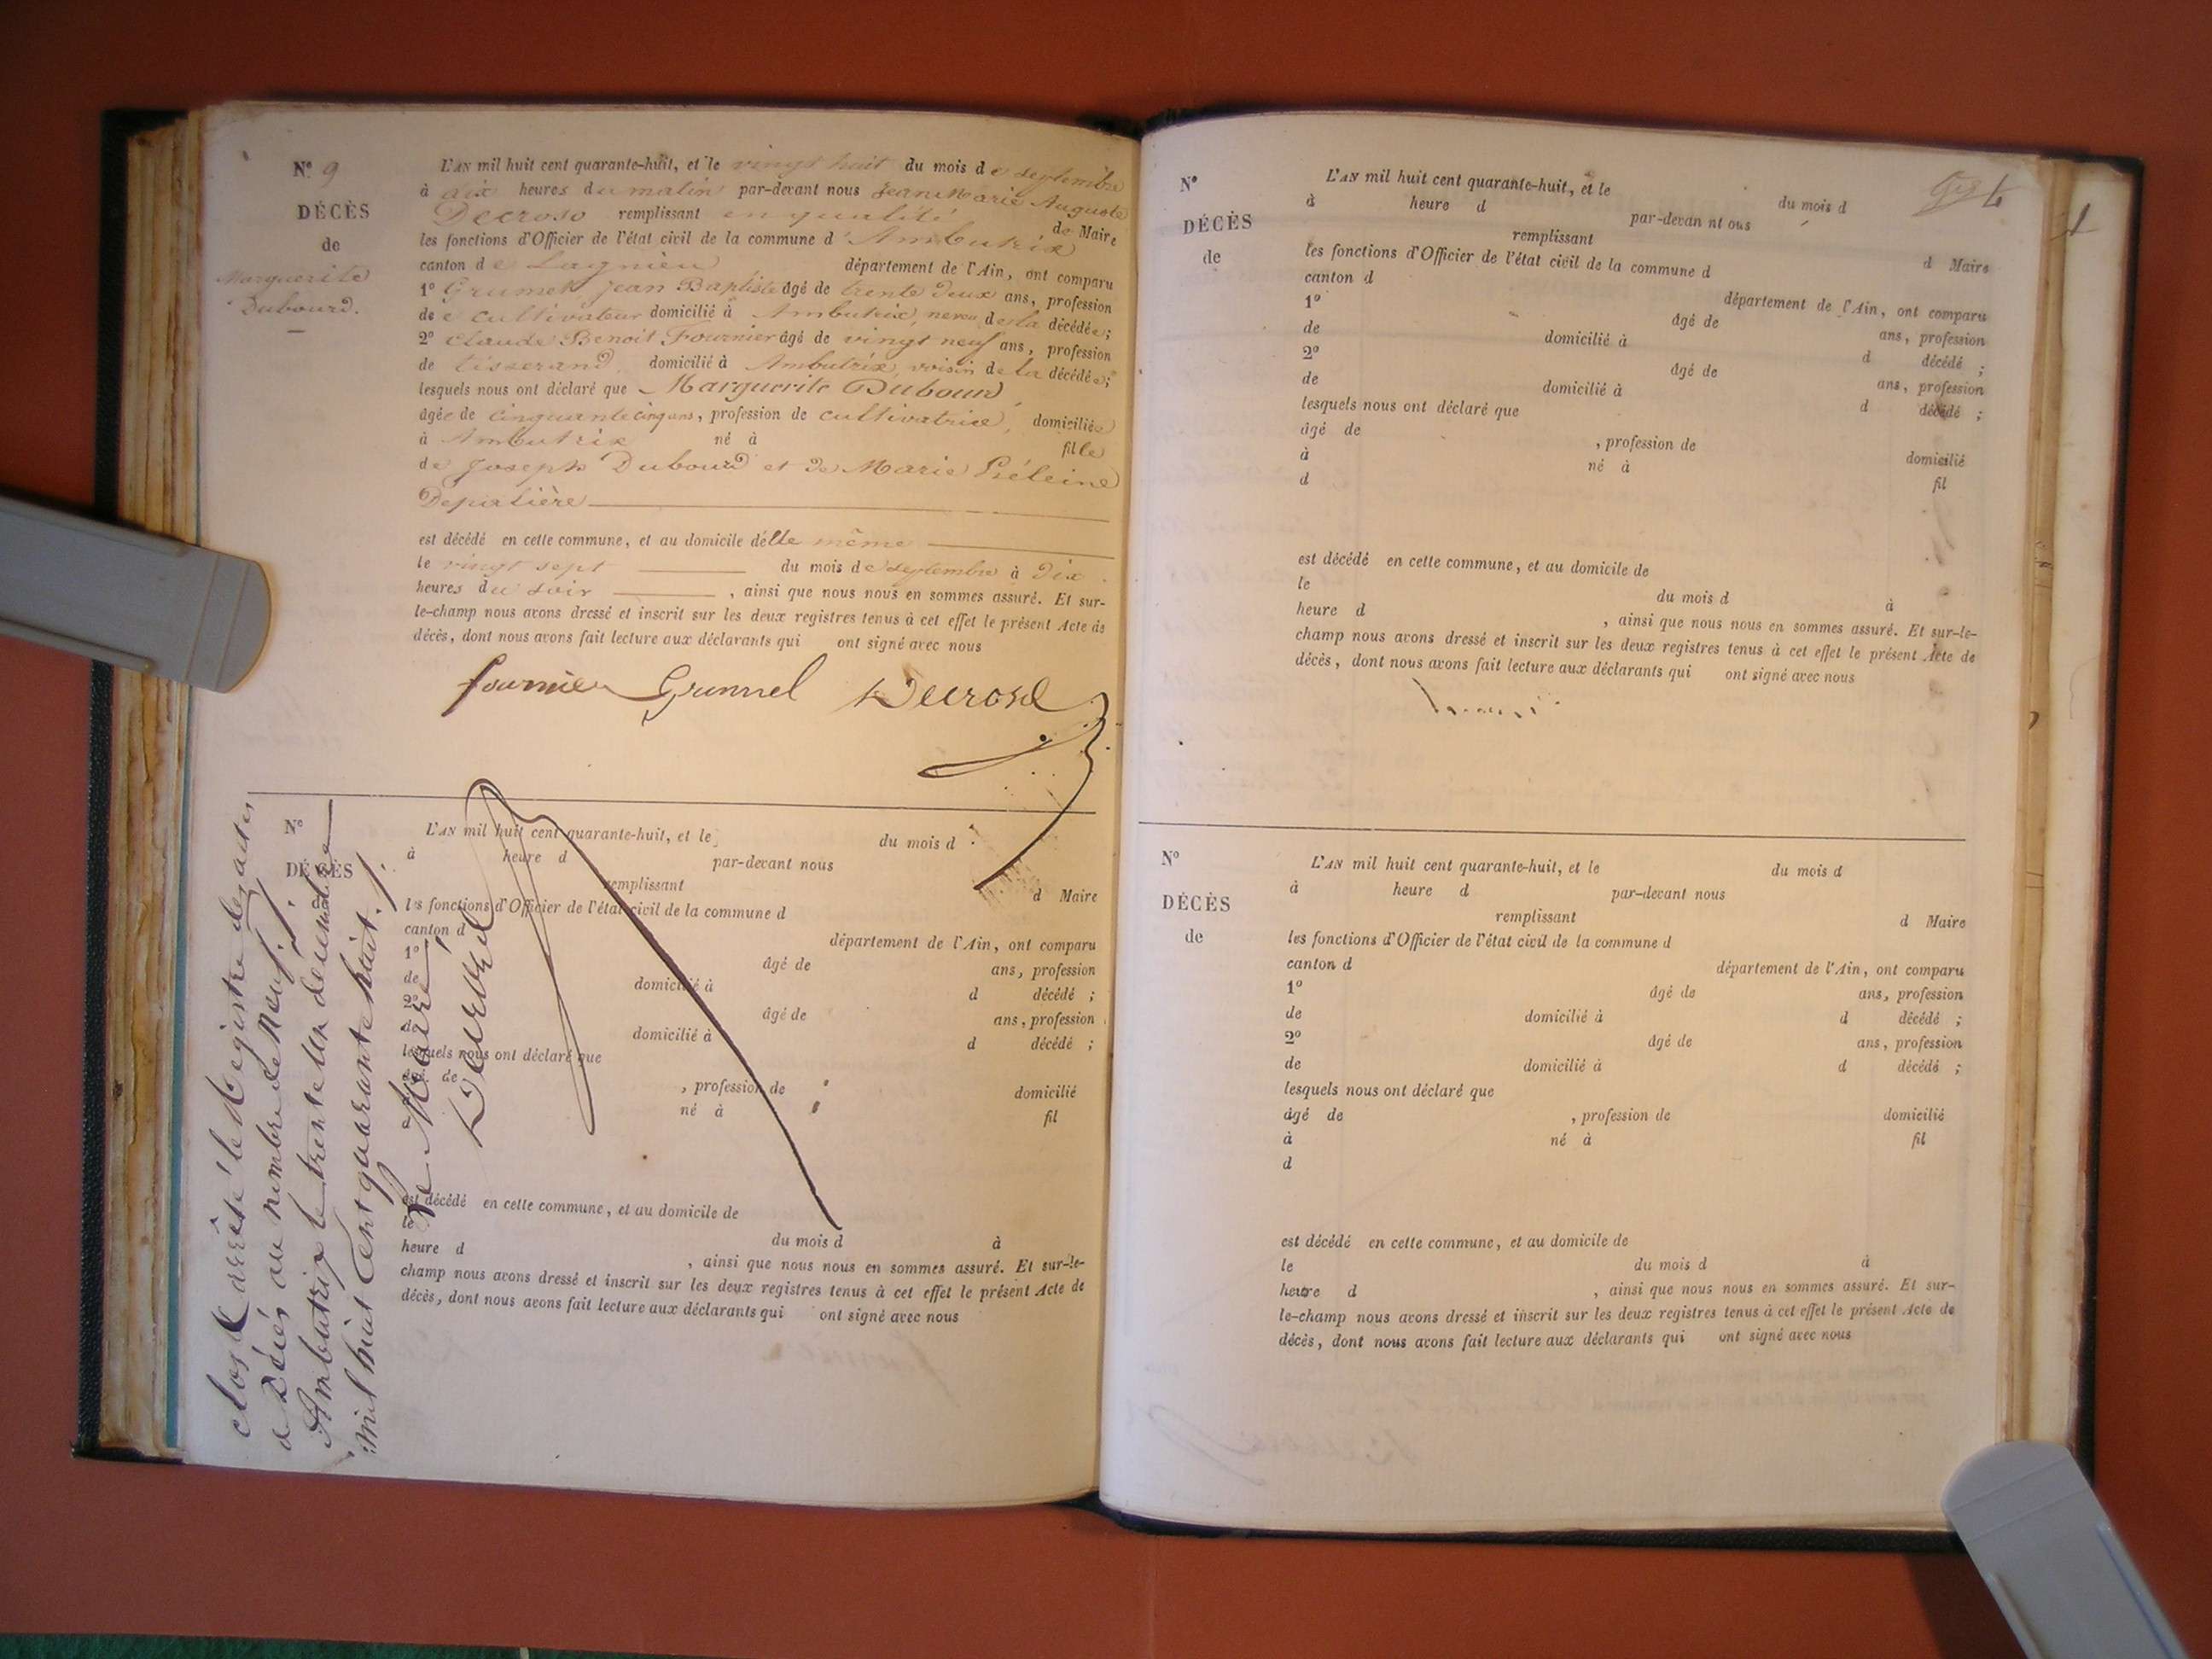 Nº 9
DÉCÈS
de
Marguerite
Dubourd.
L'AN mil huit cent quarante-huit, et le vingt huit du mois de septembre
à dix heures du matin par-devant nous Jean Marie Auguste
Decroso remplissant en qualité de Maire
les fonctions d'Officier de l'état civil de la commune d'Ambutrix
canton de Lagnieu département de l'Ain, ont comparu
1º Grumet Jean Baptiste âgé de trente deux ans, profession
de cultivateur domicilié à Ambutrix, neveu de la décédée;
2º Claude Benoit Fournier âgé de vingt neuf ans, profession
de tisserand, domicilié à Ambutrix, voisin de la décédée;
lesquels nous ont déclaré que Marguerite Dubourd,
âgée de cinquante cinq ans, profession de cultivatrice, domiciliée
à Ambutrix né à fille
de Joseph Dubourd et de Marie
Depalière
est décédé en cette commune, et au domicile d'elle même
le vingt sept du mois de septembre à dix
heures du soir , ainsi que nous nous en sommes assuré. Et sur-
le-champ nous avons dressé et inscrit sur les deux registres tenus à cet effet le présent Acte de
décès, dont nous avons fait lecture aux déclarants qui ont signé avec nous
fournier Grumel Decroso
Nº
DÉCÈS
L'AN mil huit cent quarante-huit, et le du mois d
à heure d par-devant nous
remplissant d Maire
les fonctions d'Officier de l'état civil de la commune d
canton d département de l'Ain, ont comparu
1º âgé de ans, profession
de domicilié à d décédé ;
2º âgé de ans, profession
de domicilié à d décédé ;
lesquels nous ont déclaré que
âgé de , profession de domicilié
né à fil
est décédé en cette commune, et au domicile de
le du mois d à
heure d , ainsi que nous nous en sommes assuré. Et sur-le-
champ nous avons dressé et inscrit sur les deux registres tenus à cet effet le présent Acte de
décès, dont nous avons fait lecture aux déclarants qui ont signé avec nous
clos & arrêté le Registre des actes
de Décès au nombre de Neuf.
Ambutrix le trente un décembre
mil huit Cent quarante huit.
Le Maire
Decroso
Nº
DÉCÈS
de
L'AN mil huit cent quarante-huit, et le du mois d
à heure d par-devan nt ous
remplissant d Maire
les fonctions d'Officier de l'état civil de la commune d
canton d département de l'Ain, ont comparu
1º âgé de ans, profession
de domicilié à d décédé ;
2º âgé de ans, profession
de domicilié à d décédé ;
lesquels nous ont déclaré que
âgé de , profession de domicilié
à né à fil
d
est décédé en cette commune, et au domicile de
le du mois d à
heure d , ainsi que nous nous en sommes assuré. Et sur-le-
champ nous avons dressé et inscrit sur les deux registres tenus à cet effet le présent Acte de
décès, dont nous avons fait lecture aux déclarants qui ont signé avec nous
Nº
DÉCÈS
de
L'AN mil huit cent quarante-huit, et le du mois d
à heure d par-devant nous
remplissant d Maire
les fonctions d'Officier de l'état civil de la commune d
canton d département de l'Ain, ont comparu
1º âgé de ans, profession
de domicilié à d décédé ;
2º âgé de ans, profession
de domicilié à d décédé ;
lesquels nous ont déclaré que
âgé de , profession de domicilié
à né à fil
d
est décédé en cette commune, et au domicile de
le du mois d à
heure d , ainsi que nous nous en sommes assuré. Et sur-
le-champ nous avons dressé et inscrit sur les deux registres tenus à cet effet le présent Acte de
décès, dont nous avons fait lecture aux déclarants qui ont signé avec nous